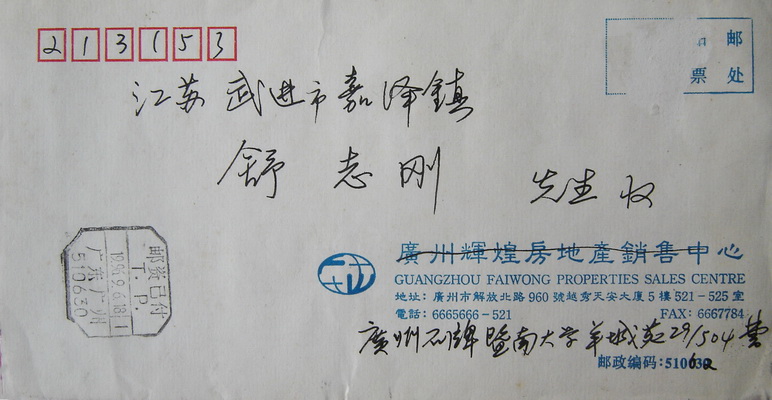 213153
邮
票 处
江苏 武进市嘉泽镇
舒志刚 先生 收
邮资已付
T. P.
广东广州
510630
廣州輝煌房地產銷售中心
GUANGZHOU FAIWONG PROPERTIES SALES CENTRE
地址: 廣州市解放北路 960 號越秀天安大厦 5 樓 521 - 525 室
電話: 6665666 - 521 FAX: 6667784
廣州石牌暨南大学羊城苑 29/504
邮政编码: 510632